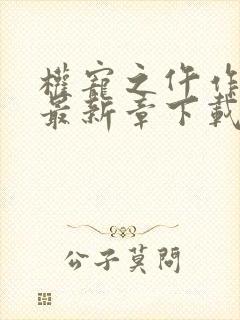 權寵之仵作
最新章下載
公子莫問